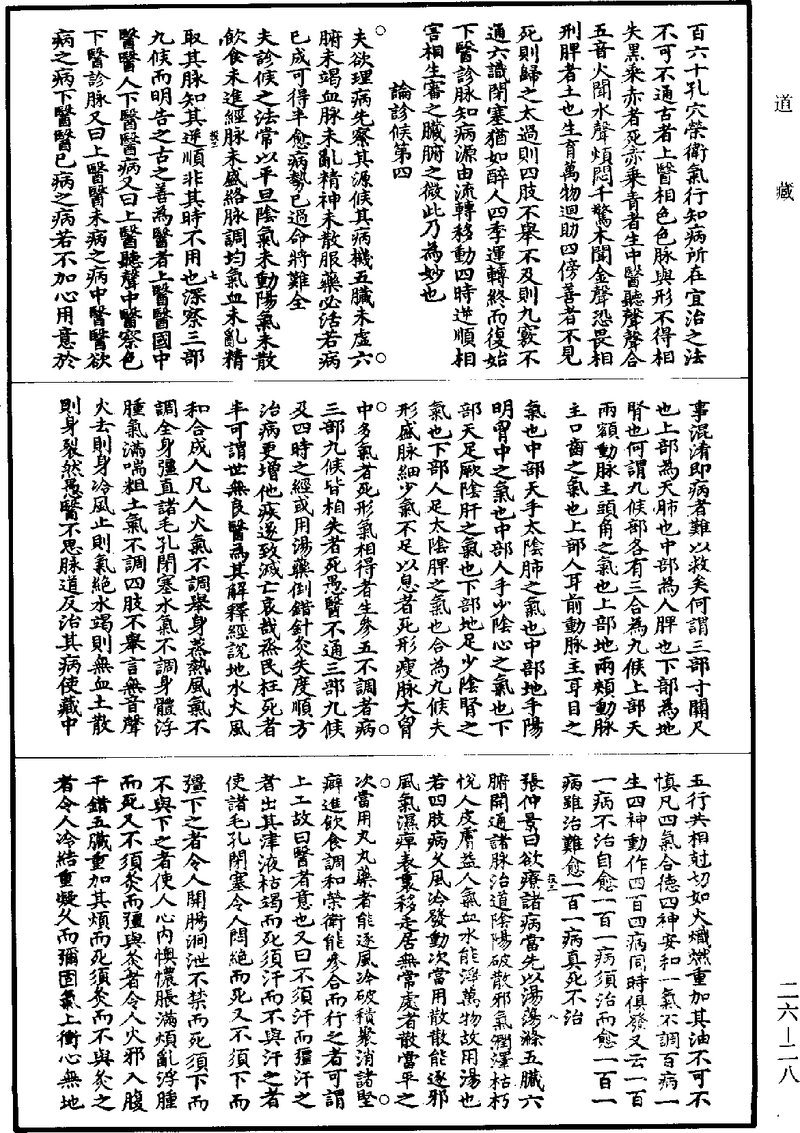 道藏
百六十孔穴榮衛氣行知病所在宜治之法
不可不通古者上醫相色色脉與形不得相
失黑乘赤者死赤乘青者生中醫聽聲聲合
五音火聞水聲煩悶千驚木聞金聲恐畏相
刑脾者土也生育萬物迴助四傍善者不見
死則歸之太過則四肢不舉不及則九竅不
通六識閉塞猶如醉人四季運轉終而復始
下醫診脉知病源由流轉移動四時逆順相
害相生審之臟腑之微此乃為妙也
論診候第四
夫欲理病先察其源候其病機五臟未虛六
腑未竭血脉未亂精神未散服藥必活若病
已成可得半愈病勢已過命將難全
夫診候之法常以平旦陰氣未動陽氣未散
飲食未進經脉未盛絡脉調均氣血未亂精
取其脉知其逆順非其時不用也深察三部
九候而明告之古之善為醫者上醫醫國中
醫醫人下醫醫病又曰上醫聽聲中醫察色
下醫診脉又曰上醫醫未病之病中醫醫欲
病之病下醫醫已病之病若不加心用意於
事混淆即病者難以救矣何謂三部寸關尺
也上部為天肺也中部為人脾也下部為地
腎也何謂九候部各有三合為九候上部天
兩額動脉主頭角之氣也上部地兩頰動脉
主口齒之氣也上部人耳前動脉主耳目之
氣也中部天手太陰肺之氣也中部地手陽
明胃中之氣也中部人手少陰心之氣也下
部天足厥陰肝之氣也下部地足少陰腎之
氣也下部人足太陰脾之氣也合為九候夫
形盛脉細少氣不足以息者死形瘦脉大胷
中多氣者死形氣相得者生參五不調者病
三部九候皆相失者死愚醫不通三部九候
及四時之經或用湯藥倒錯針灸失度順方
治病更增他疾遂致滅亡哀哉烝民枉死者
半可謂世無良醫為其解釋經說地水火風
和合成人凡人火氣不調舉身蒸熱風氣不
調全身彊直諸毛孔閉塞水氣不調身體浮
腫氣滿喘粗土氣不調四肢不舉言無音聲
火去則身冷風止則氣絕水竭則無血土散
則身裂然愚醫不思脉道反治其病使藏中
五行共相尅切如火熾燃重加其油不可不
慎凡四氣合德四神安和一氣不調百病一
生四神動作四百四病同時俱發又云一百
一病不治自愈一百一病須治而愈一百一
病雖治難愈一百一病真死不治
張仲景曰欲療諸病當先以湯蕩滌五臟六
腑開通諸脉治道陰陽破散邪氣潤澤枯朽
悅人皮膚益人氣血水能淨萬物故用湯也
若四肢病久風冷發動次當用散散能逐邪
風氣濕痺表裏移走居無常處者散當平之
次當用丸丸藥者能逐風冷破積聚消諸堅
癖進飲食調和榮衛能參合而行之者可謂
上工故曰醫者意也又曰不須汗而彊汗之
者出其津液枯竭而死須汗而不與汗之者
使諸毛孔閉塞令人悶絕而死又不須下而
彊下之者令人開腸洞泄不禁而死須下而
不與下之者使人心內懊憹脹滿煩亂浮腫
而死又不須灸而彊與灸者令人火邪入腹
干錯五臟重加其煩而死須灸而不與灸之
者令人冷結重凝久而彌固氣上衝心無地
二六—二八